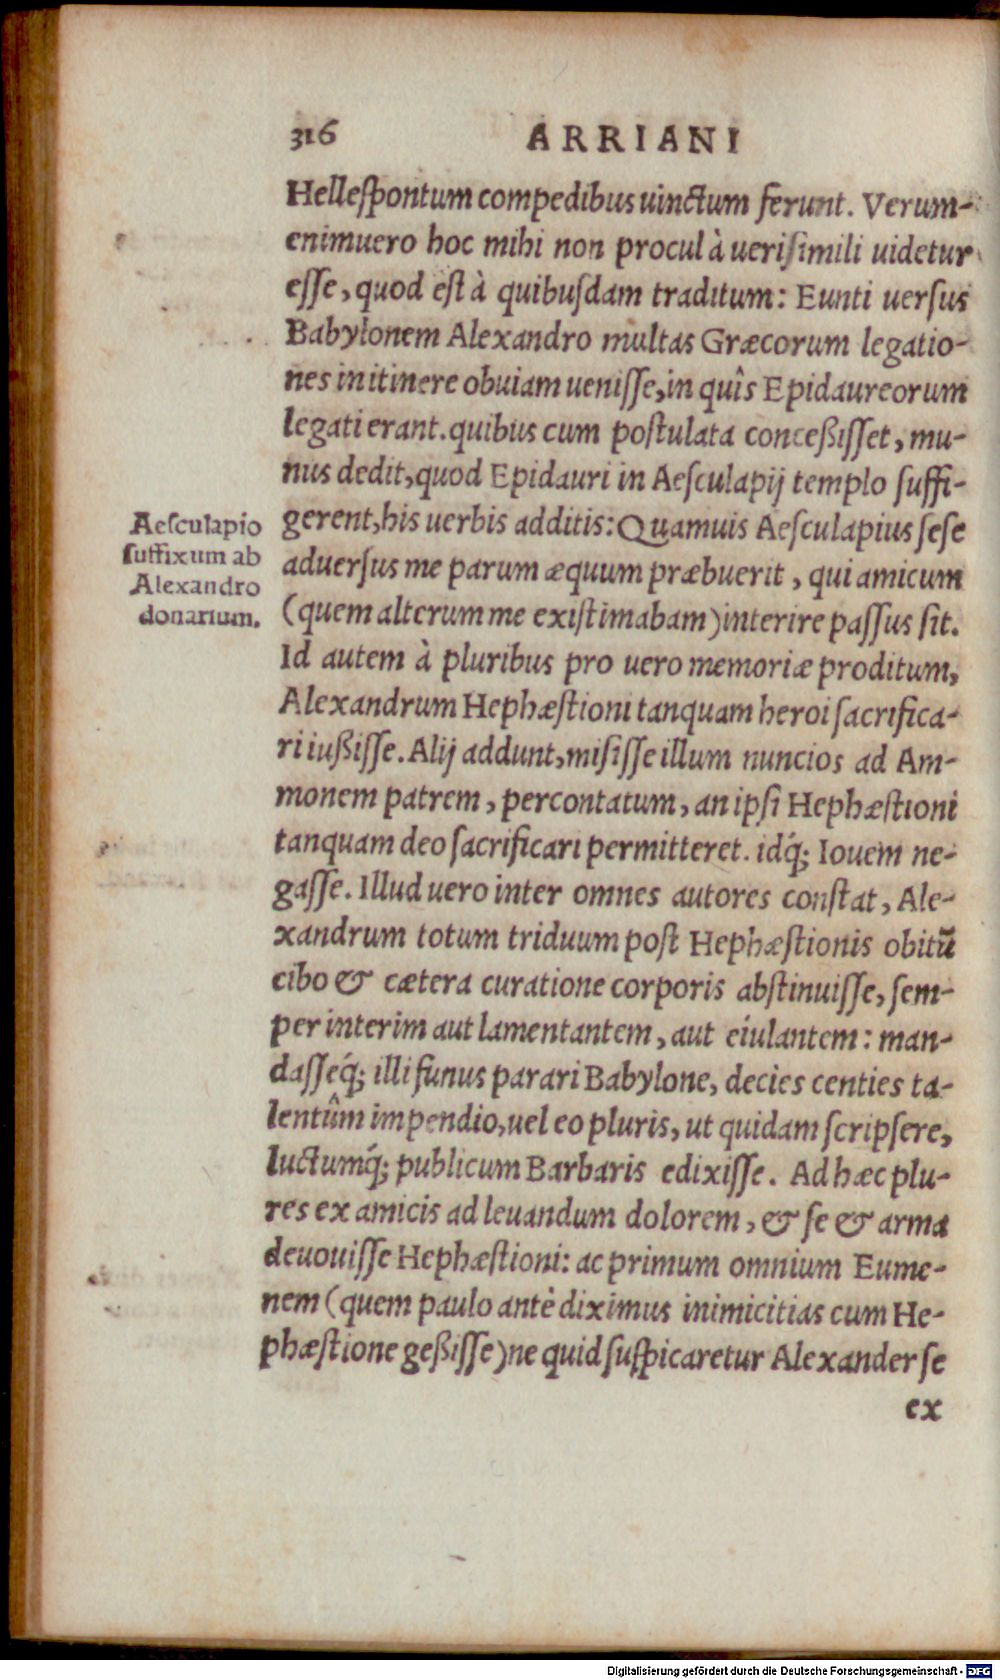 316 ARRIANI
Helleſpontum compedibus uinctum ferunt. Verum-
enimuero hoc mihi non procul à ueriſimili uidetur
eſſe, quod eſt à quibuſdam traditum: Eunti uerſus
Babylonem Alexandro multas Græcorum legatio-
nes in itinere obuiam ueniſſe, in quîs Epidaureorum
legati erant. quibus cum poſtulata conceßiſſet, mu-
nus dedit, quod Epidauri in Aeſculapij templo ſuffi-
gerent, his uerbis additis: Quamuis Aeſculapius ſeſe
aduerſus me parum æquum præbuerit, qui amicum
(quem alterum me exiſtimabam) interire paſſus ſit.
Id autem à pluribus pro uero memoriæ proditum,
Alexandrum Hephæſtioni tanquam heroi ſacrifica-
ri iußiſſe. Alij addunt, miſiſſe illum nuncios ad Am-
monem patrem, percontatum, an ipſi Hephæſtioni
tanquam deo ſacrificari permitteret. idq́; Iouem ne-
gaſſe. Illud uero inter omnes autores conſtat, Ale-
xandrum totum triduum poſt Hephæſtionis obitũ
cibo & cætera curatione corporis abſtinuiſſe, ſem-
per interim aut lamentantem, aut eiulantem: man-
daſſeq́; illi funus parari Babylone, decies centies ta-
lentûm impendio, uel eo pluris, ut quidam ſcripſere,
luctumq́; publicum Barbaris edixiſſe. Ad hæc plu-
res ex amicis ad leuandum dolorem, & ſe & arma
deuouiſſe Hephæſtioni: ac primum omnium Eume-
nem (quem paulo antè diximus inimicitias cum He-
phæſtione geßiſſe) ne quid ſuſpicaretur Alexander ſe
ex
Aeſculapio
ſuffixum ab
Alexandro
donarium.
Digitalisierung gefördert durch die Deutsche Forschungsgemeinschaft - DFG